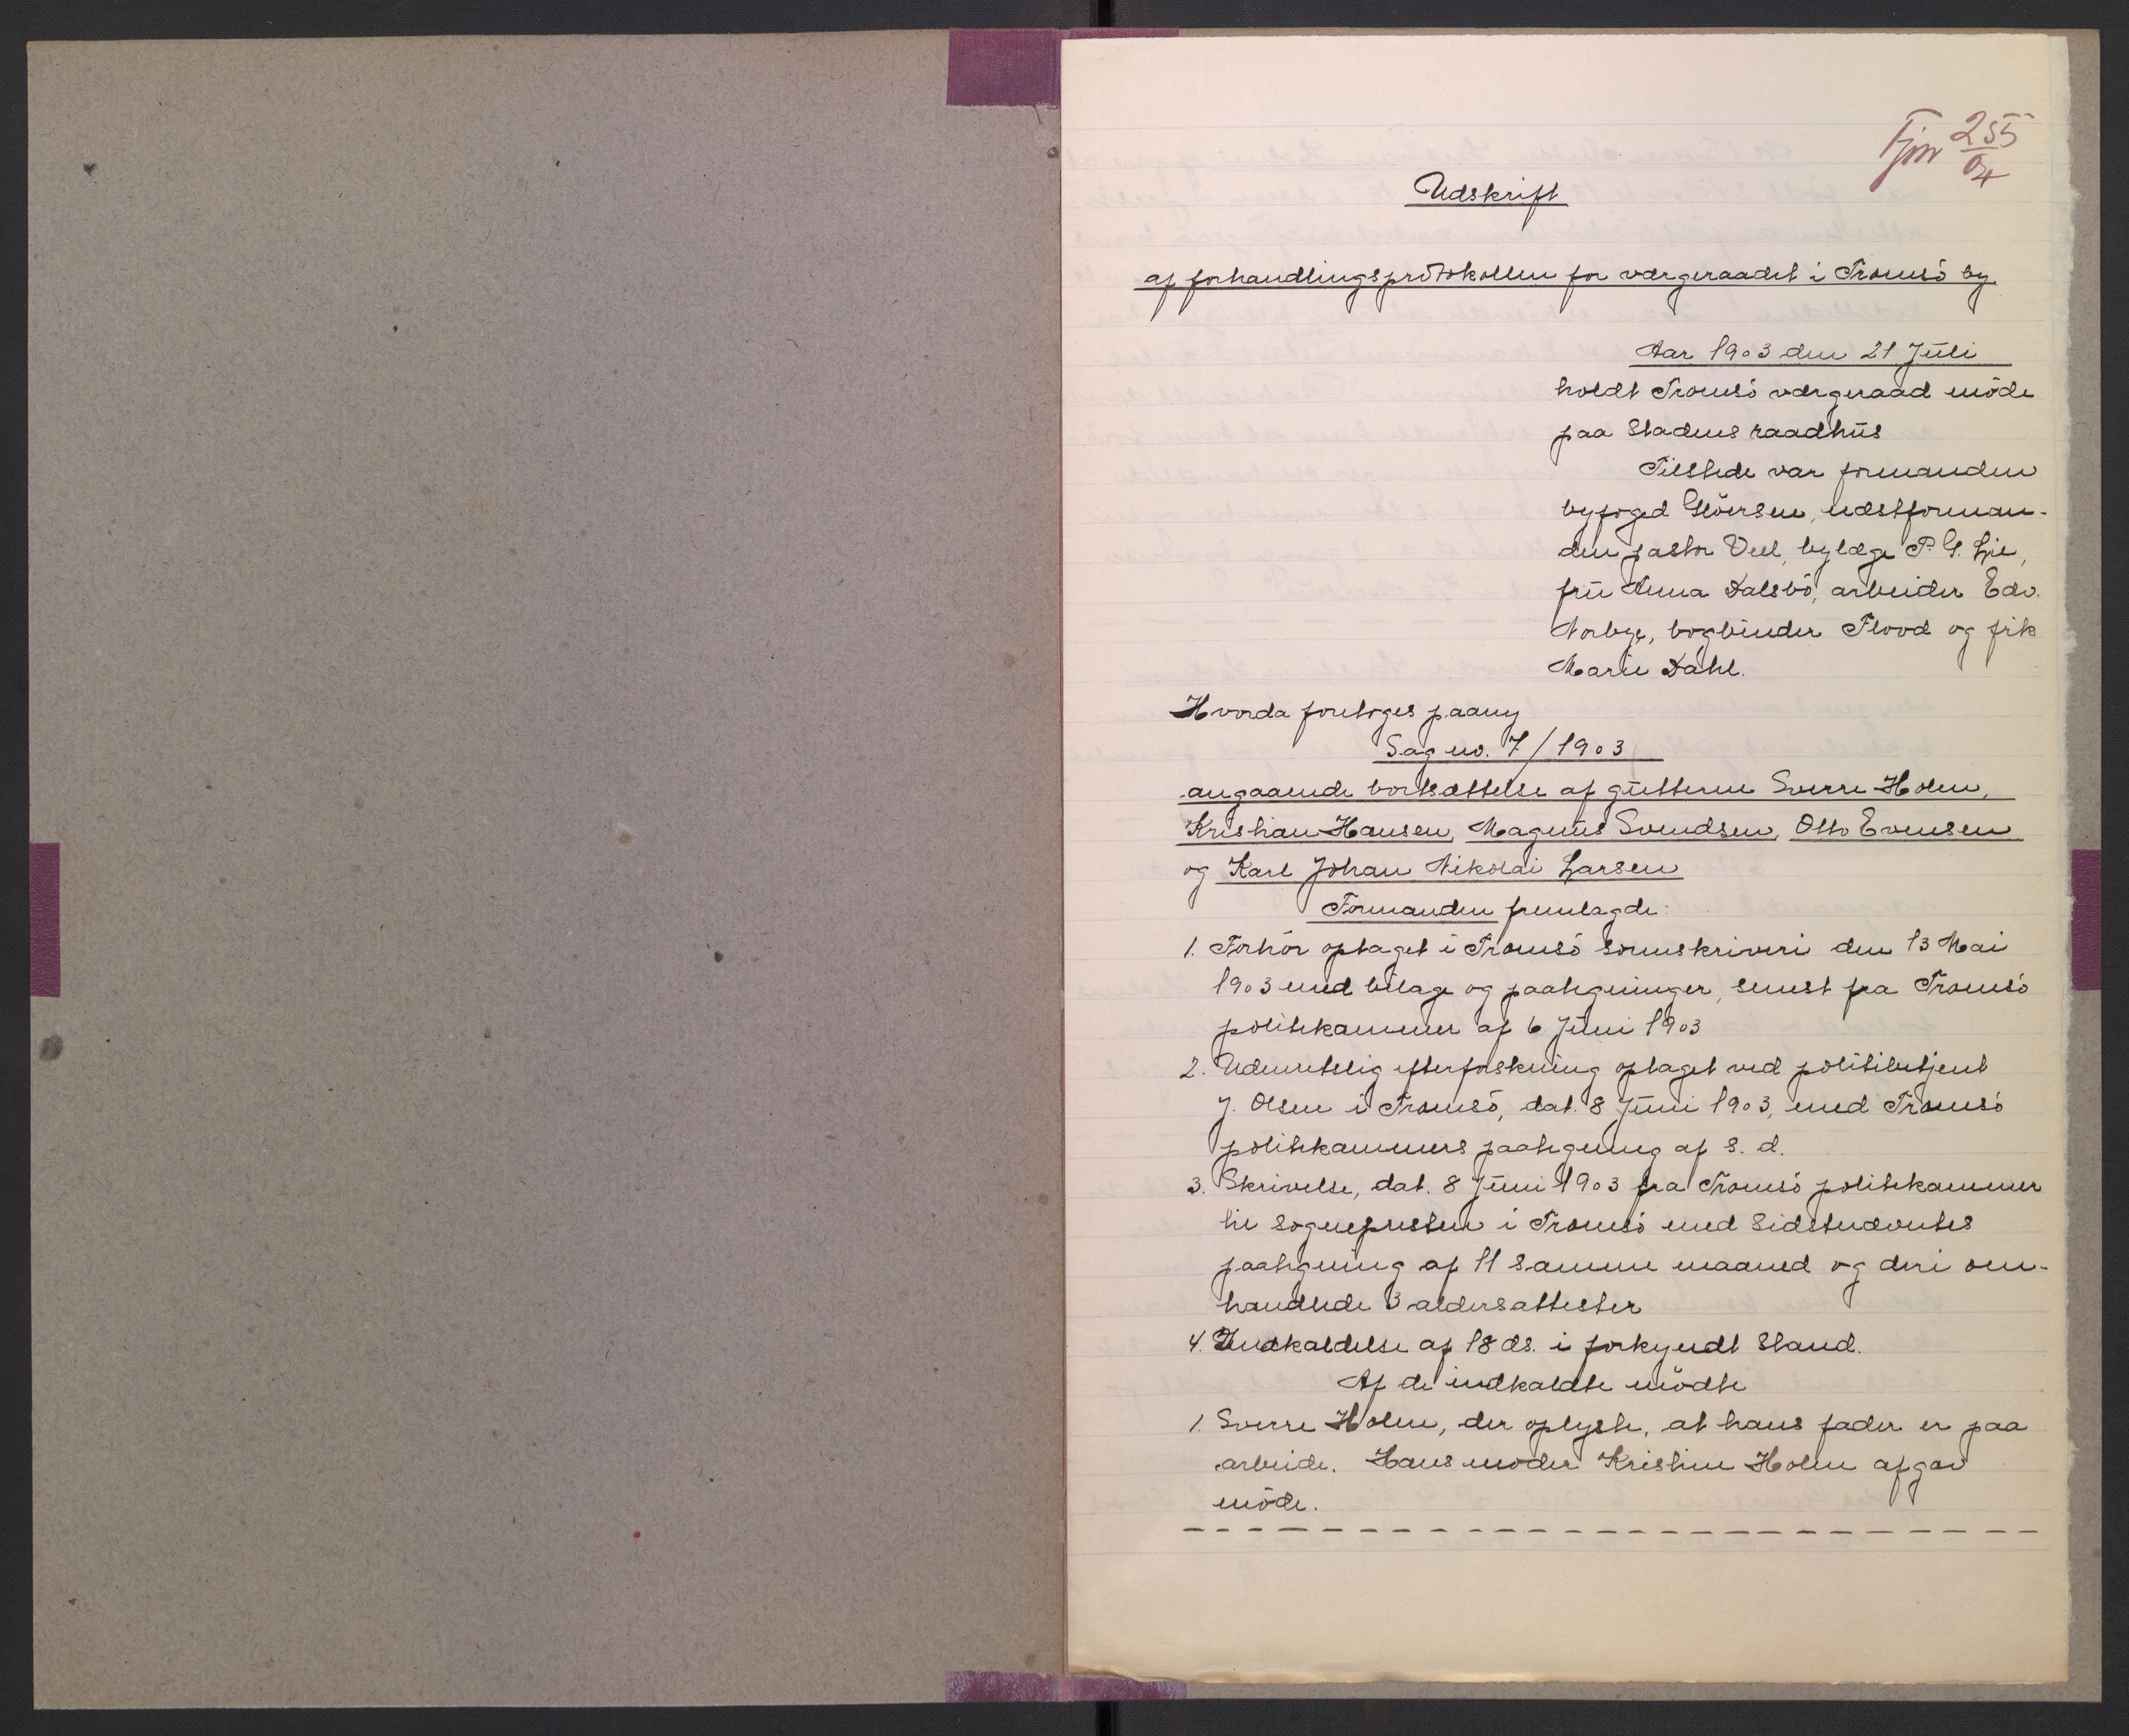 Fjnr 255/04
Udskrift
af forhandlingsprotokollen for værgeraadet i Tromsö by.
Aar 1903 den 21 Juli
holdt Tromsö værgeraad möde
paa Stadens raadhus
Tilstede var formanden
byfoged Glöersen, næstforman-
den pastor Veel, bylæge P. G. Lie,
fru Anna Dalsbö, arbeider Edv.
Norbye, bogbinder Flood og frk
Marie Dahl.
Hvorda foretoges paany
Sag no. 7/1903
angaaende bortsættelse af gutterne Sverre Holm,
Kristian Hansen, Magnus Svendsen, Otto Evensen
og Karl Johan Nikolai Larsen
Formanden fremlagde:
1. Forhör optaget i Tromsö sorenskriveri den 13 Mai
1903 med bilage og paategninger, senest fra Tromsö
politikammer af 6 Juni 1903
2. Udenretslig efterforskning optaget ved politibetjent
J. Olsen i Tromsö, dat. 8 Juni 1903, med Tromsö
politikammers paategning af s. d.
3. Skrivelse, dat. 8 Juni 1903 fra Tromsö politikammer
til sognepresten i Tromsö med sidstnævntes
paategning af 11 samme maaned og deri om-
handlede 3 aldersattester
4. Indkaldelse af 18 ds. i forkyndt stand.
Af de indkaldte mödte
1. Sverre Holm, der oplyste, at hans fader er paa
arbeide. Hans moder Kristine Holm afgav
möde.